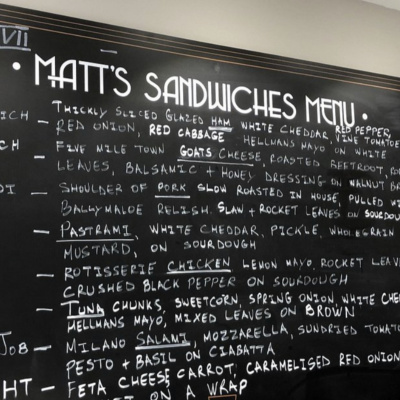 VII
• MATT'S SANDWICHES MENU •
ICH — THICKLY SLICED GLAZED HAM WHITE CHEDDAR, RED PEPPER,
RED ONION, RED CABBAGE VINE TOMATOE
HELLMANS MAYO ON WHITE
CH — FIVE MILE TOWN GOATS CHEESE, ROASTED BEETROOT,
LEAVES, BALSAMIC + HONEY DRESSING ON WALNUT BR
DI — SHOULDER OF PORK SLOW ROASTED IN HOUSE, PULLED WI
BALLYMALOE RELISH, SLAW + ROCKET LEAVES ON SOURDOU
— PASTRAMI, WHITE CHEDDAR, PICKLE, WHOLEGRAIN
MUSTARD, ON SOURDOUGH
— ROTISSERIE CHICKEN, LEMON MAYO, ROCKET LEAVE
CRUSHED BLACK PEPPER ON SOURDOUGH
— TUNA CHUNKS, SWEETCORN, SPRING ONION, WHITE CHE
HELLMANS MAYO, MIXED LEAVES ON BROWN
JOB — MILANO SALAMI, MOZZARELLA, SUNDRIED TOMATO
PESTO + BASIL ON CIABATTA
HT — FETA CHEESE CARROT, CARAMELISED RED ONION
ON A WRAP